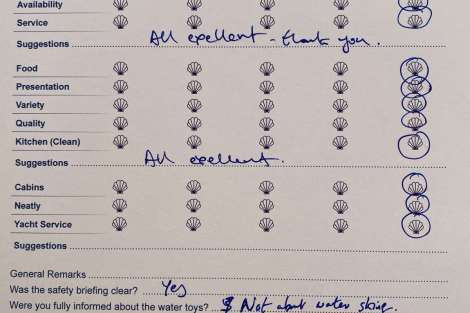 Availability
Service
Suggestions All expellent - thank you.
Food
Presentation
Variety
Quality
Kitchen (Clean)
Suggestions All expellent.
Cabins
Neatly
Yacht Service
Suggestions
General Remarks
Was the safety briefing clear? Yes
Were you fully informed about the water toys? Not about water